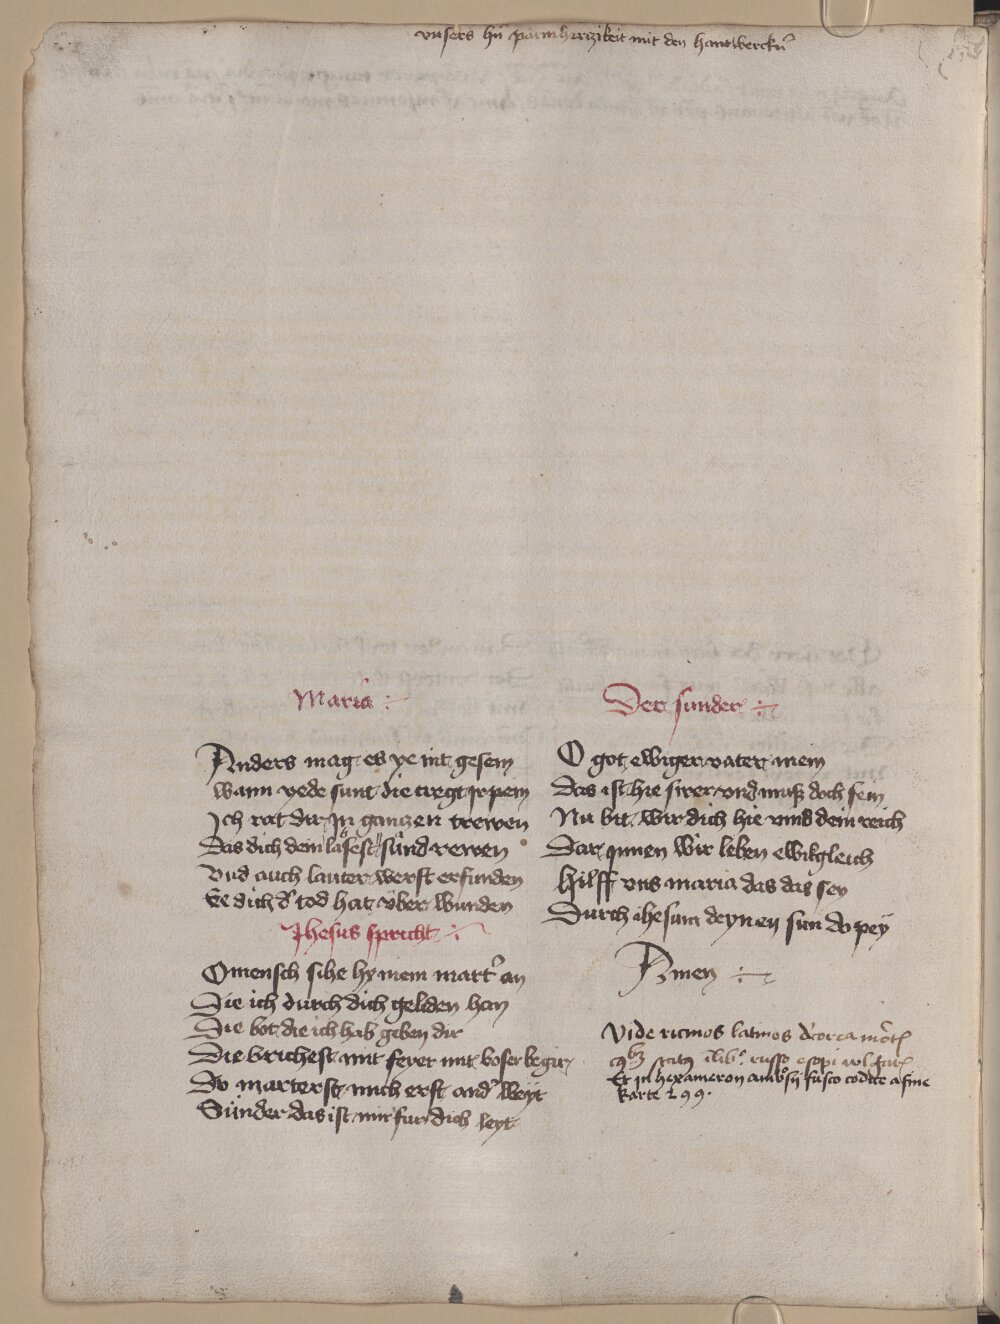 vnsers hn̄ parmherzikeit mit den hantwerckn̄
Maria
Anders mag es ye nit gesein
wann yede sunt die tregt ir pein
Ich rat dir Jn ganczen trewen
Das dich dein sünd rewen
Vnd auch lauter werst erfunden
Ee dich d' tod hat vber wunden
Jhesus spricht
O mensch sihe hy mein mart' an
Die ich durch dich geliden han
Die bot die ich hab geben dir
Die brichest mit feyer mit boser begir
Do marterst mich erst and' weyt
Sünder das ist mir fur dich leyt
Der sunder
O got ewiger vater mein
Das ist hie swer vnd muß doch sein
Nu bit wir dich hie vmb dein reich
Dar ynnen wir leben ewikgleich
Hilff vns maria das das sey
Durch ihesum deynen sun do pey
Amen
Vide ricmos latinos
Et in hexameron ambrosij fusco codice a fine
karte 299.